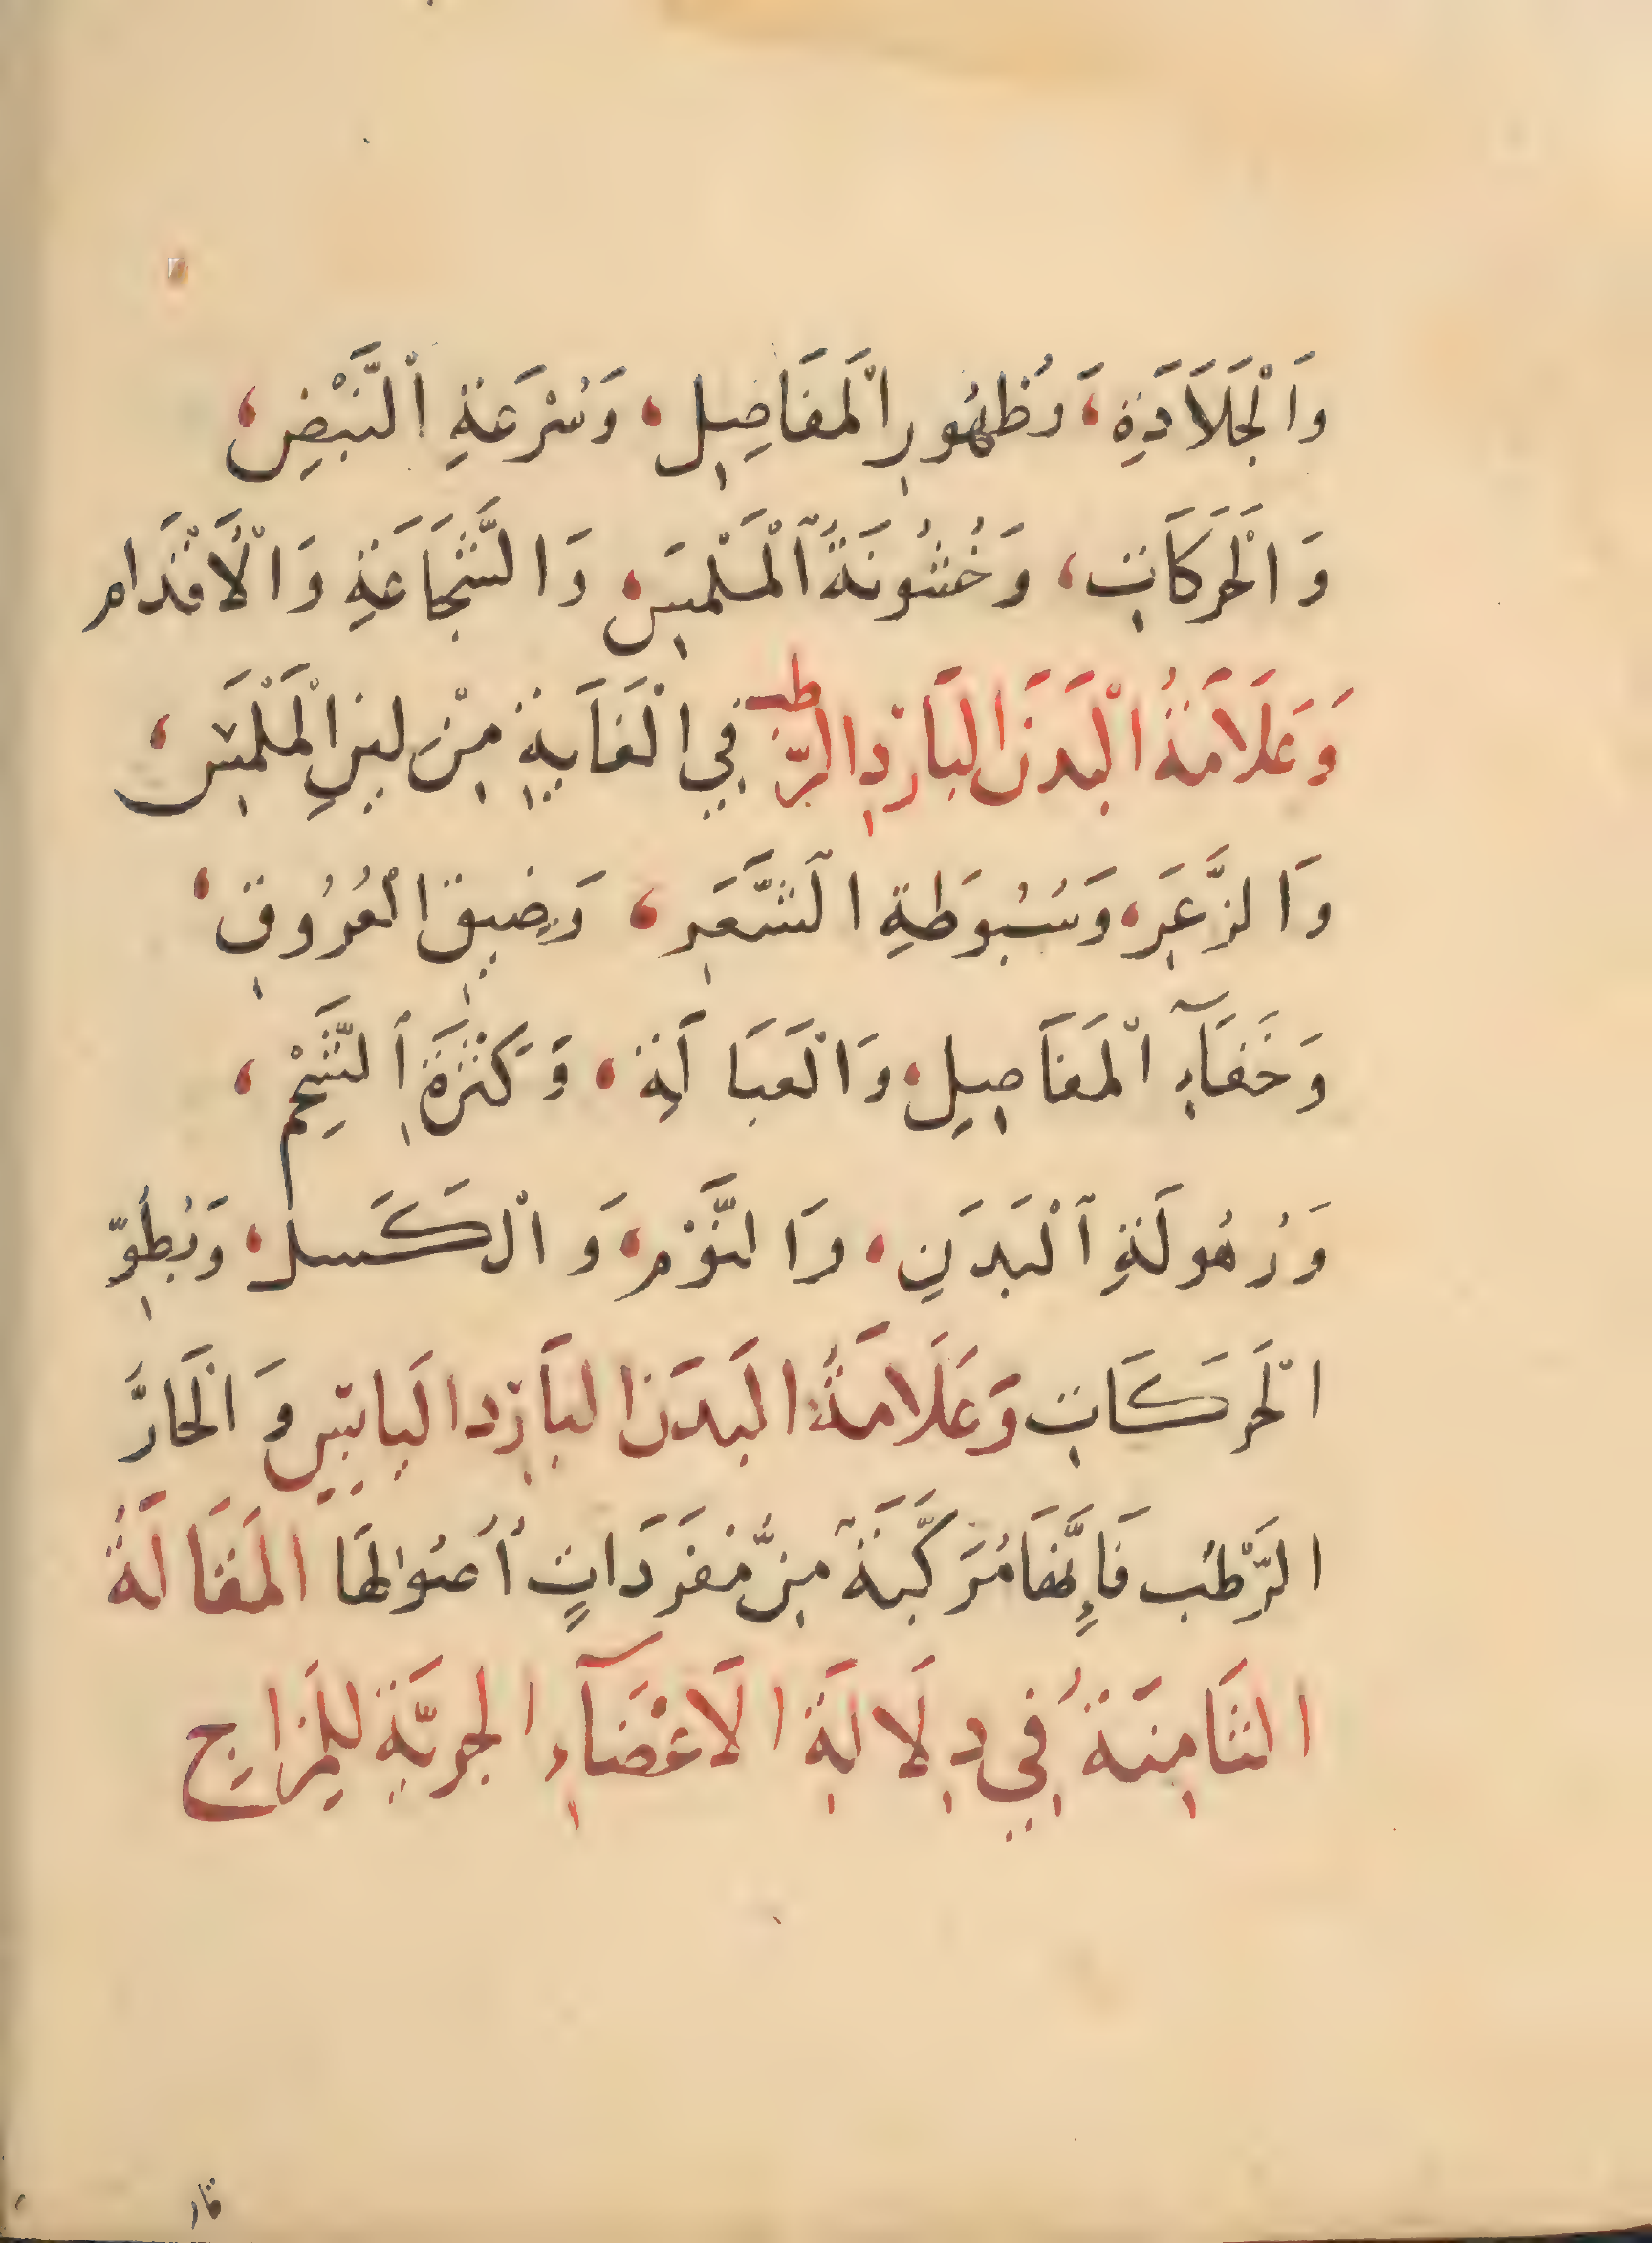 وَالْجَلَادَةِ، وَظُهُورِ الْمَفَاصِلِ، وَسُرْعَةِ اْلنَّبْضِ،
وَالْحَرَكَاتِ، وَخُشُونَةُ اٰلْمَلْمَسِ، وَالشَّجَاعَةِ وَالْأَقْدَام
وَعَلَامَةُ الْبَدَن البَارِدِ الرَّطب فِي الْغَايَةِ مِنْ لِينِ الْمَلْمَسِ،
وَالزَّعَرِ، وَسُبُوطَةِ الشَّعَرِ، وَضِيقِ الْعُرُوقِ،
وَخَفَآءِ الْمَفَاصِلِ، وَالْعَبَالَةِ، وَكَثْرَةِ الشَّحْمِ،
وَرُهُولَةِ اٰلْبَدَنِ، وَالنَّوْمِ، وَالْكَسَل، وَبُطُوِّ
الْحَرَكَاتِ وَعَلَامَةُ البَدَن البَارِد اليَابِسِ وَالحَارِّ
الرَّطْب فَإِنَّهَا مُرَكَّبَةٌ مِنْ مُفْرَدَاتٍ أعنوالها المَقَالَةُ
الثَّامِنَةُ فِي دِلَالَةِ الَاعْضَآءِ الجرِيَّةِ للمِزاجِ
قار